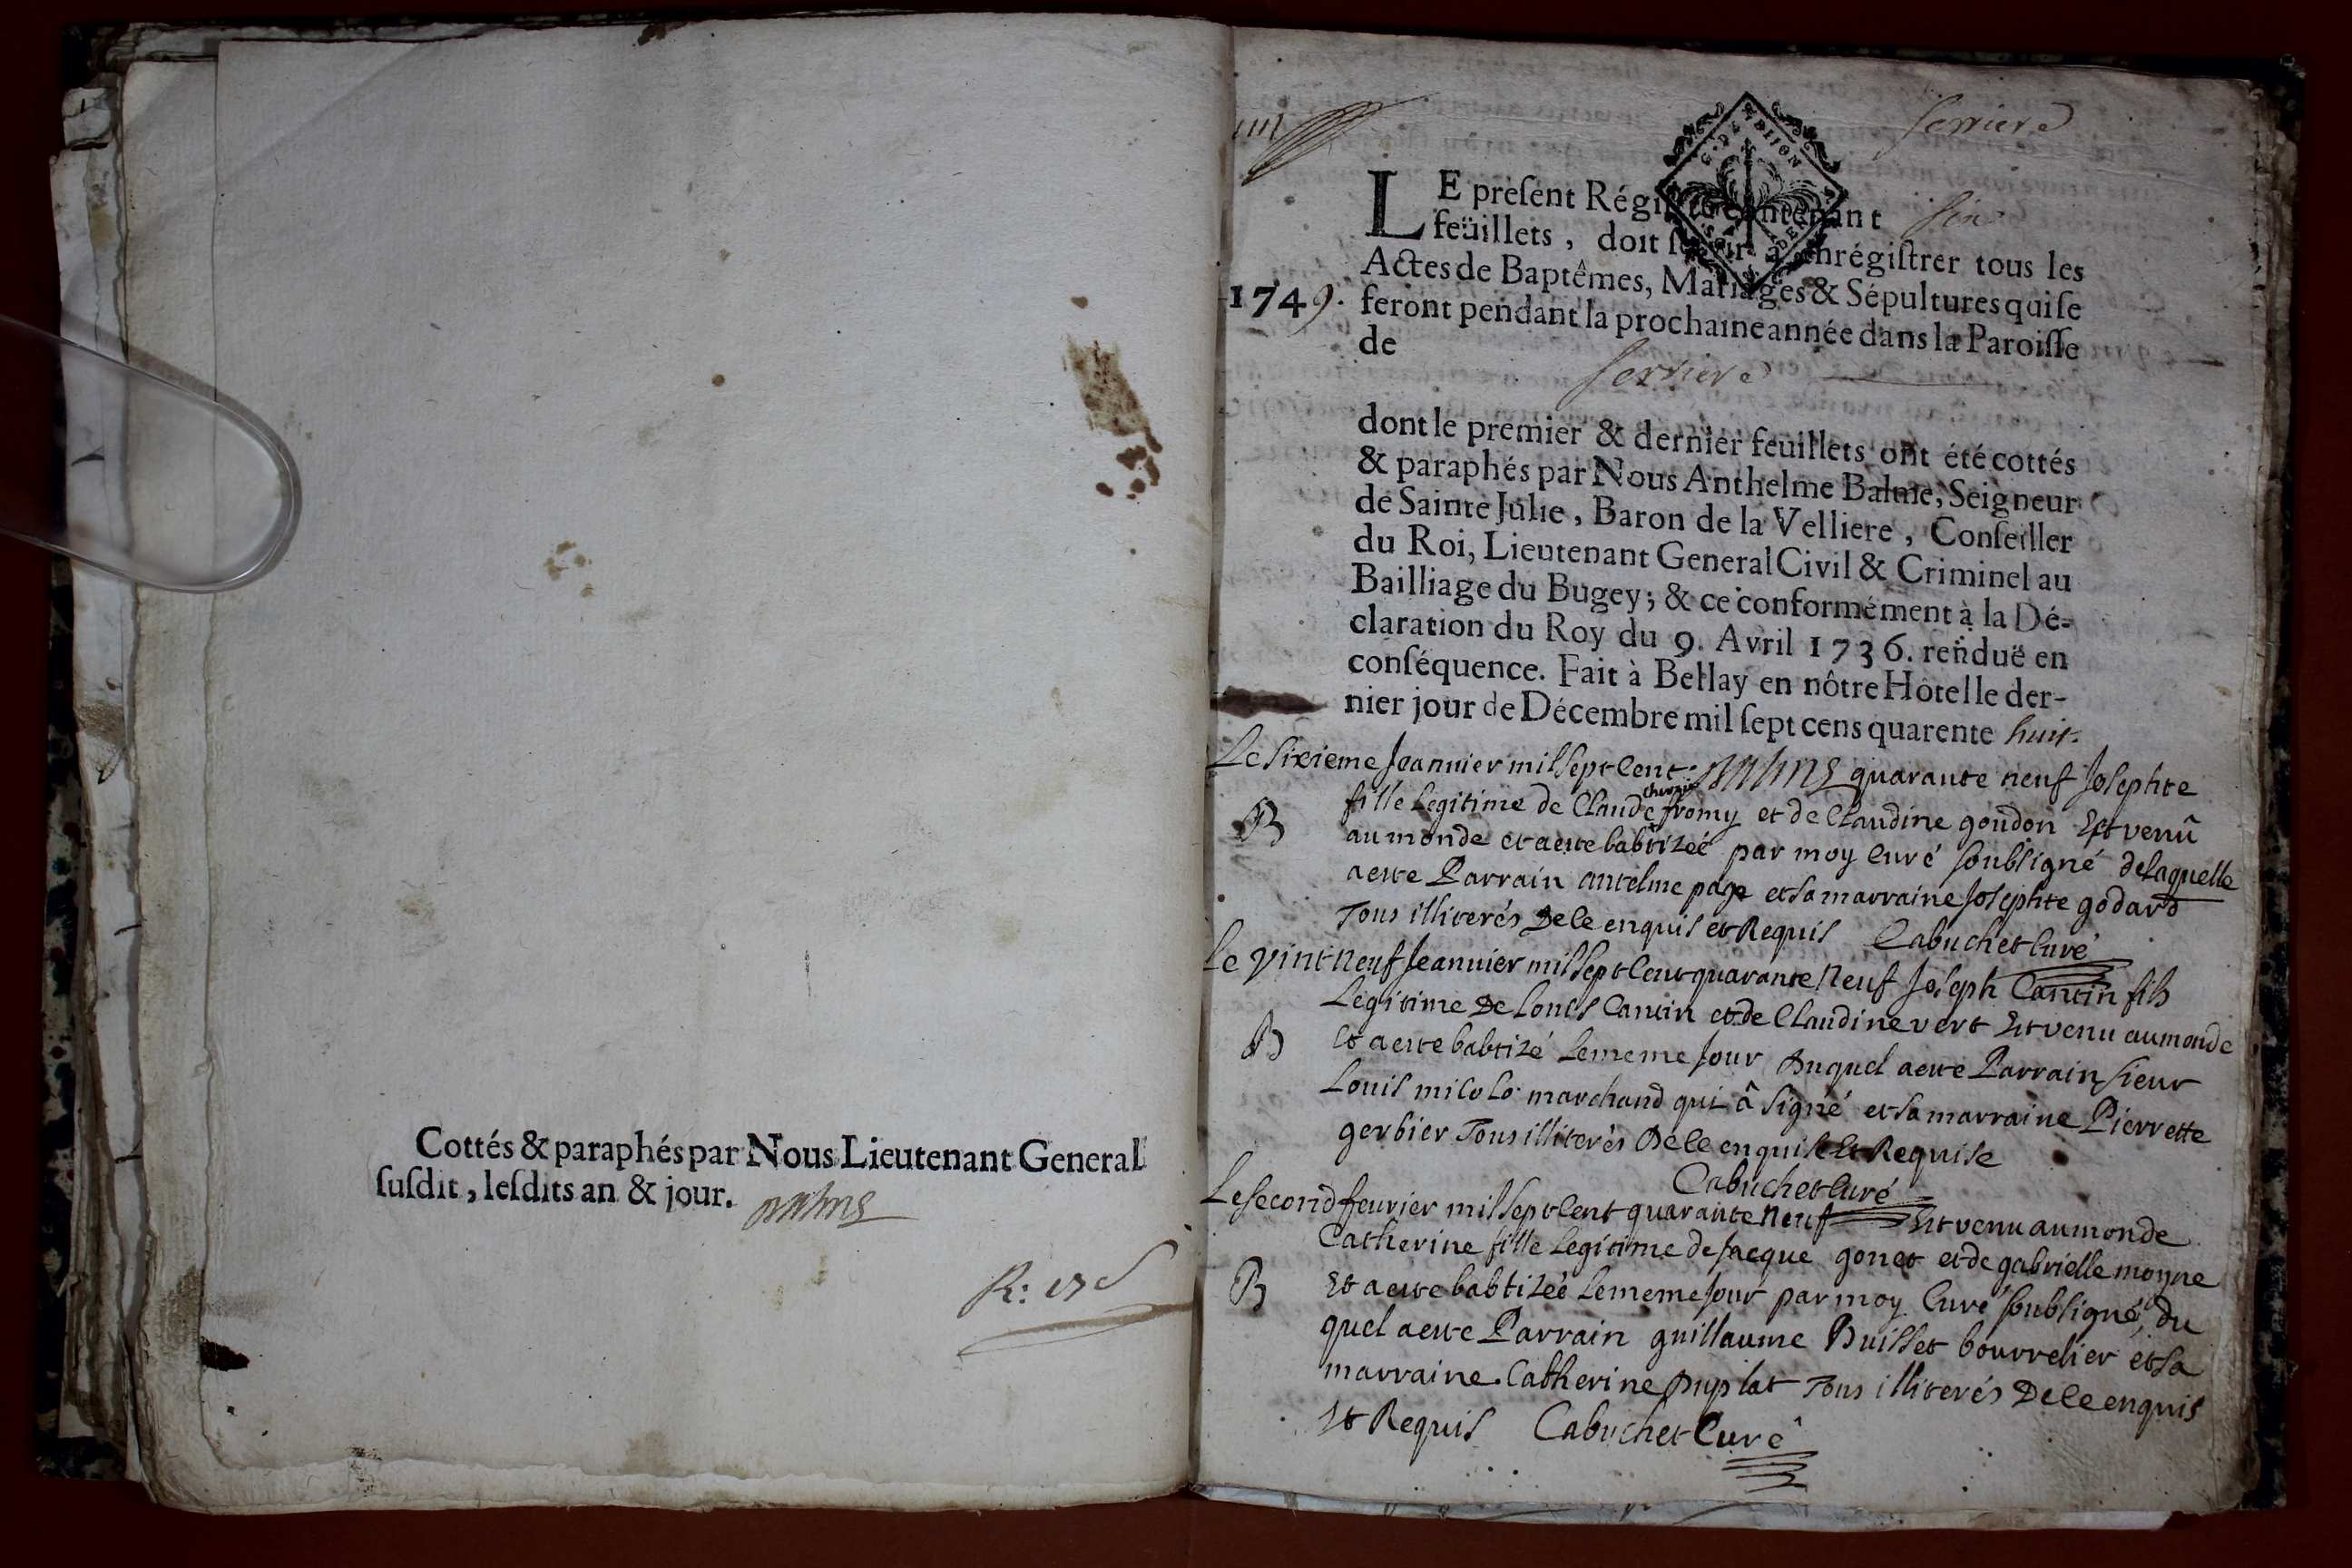 Cottés & paraphés par Nous Lieutenant General
ſuſdit, leſdits an & jour.
Serriere
LE preſent Régiſtre contenant six
feüillets, doit ſervir à enrégiſtrer tous les
Actes de Baptêmes, Mariages & Sépultures qui ſe
1749. feront pendant la prochaine année dans la Paroiſſe
de
Serriere
dont le premier & dernier feuillets ont été cottés
& paraphés par Nous Anthelme Balme, Seigneur
de Sainte Julie, Baron de la Velliere, Conſeiller
du Roi, Lieutenant General Civil & Criminel au
Bailliage du Bugey; & ce conformément à la Dé-
claration du Roy du 9. Avril 1736. renduë en
conſéquence. Fait à Bellay en nôtre Hôtel le der-
nier jour de Décembre mil ſept cens quarente huit.
Le sixieme Jeanvier mil sept cent quarante neuf Josephte
fille legitime de Claude fromy et de Claudine goudon Est venû
B au monde et a ette babtizéé par moy curé soubsigné de laquelle
a ette Parrain antelme page et sa marraine Josephte godard
Tous illiterés De ce enquis et Requis Cabuchet Curé
Le vint neuf Jeanvier mil sept cent quarante neuf Joseph Cantin fils
Legitime De Louis Cantin et de Claudine vert Est venu au monde
B Et a ette babtizé le meme jour Duquel a ette Parrain sieur
Louis micolo marchand qui â signé et sa marraine Pierrette
gerbier Tous illiterés De ce enquise Et Requise
Cabuchet Curé
Le second fevrier mil sept cent quarante neuf Est venu au monde
Catherine fille legitime de Jacque gonet et de gabrielle moyne
B Et a ette babtizéé le meme jour par moy Curé soubsigné, du
quel a ette Parrain guillaume Buisset bourrelier et sa
marraine Catherine Duplat Tous illiterés De ce enquis
Et Requis Cabuchet Curé